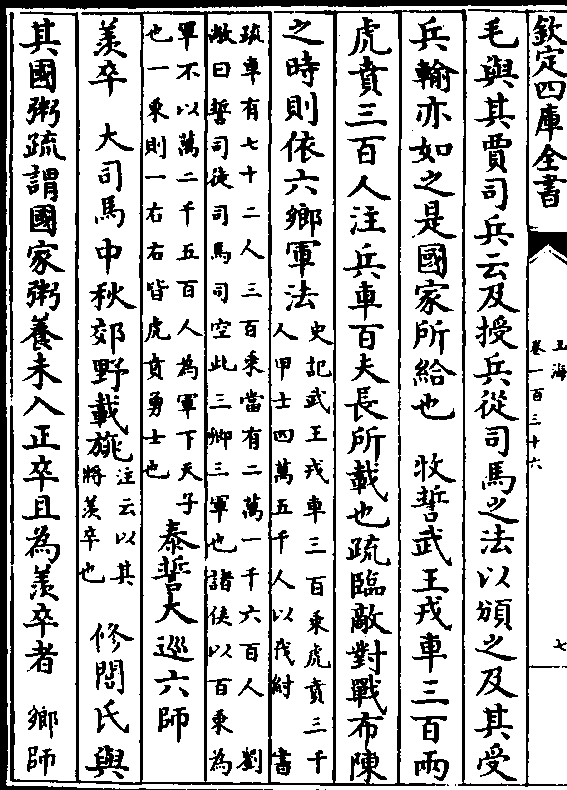 欽定四庫全書
玉海
卷一百三十六
七
毛與其賈司兵云及授兵從司馬之法以頒之及其受
兵輸亦如之是國家所給也 牧誓武王戎車三百兩
虎賁三百人注兵車百夫長所載也疏臨敵對戰布陳
之時則依六鄉軍法
史記武王戎車三百乘虎賁三千
人甲士四萬五千人以伐紂 書
疏車有七十二人三百乘當有二萬一千六百人 劉
敞曰誓司徒司馬司空此三卿三軍也諸侯以百乘為
軍不以萬二千五百人為軍下天子
也一乘則一右右皆虎賁勇士也
泰誓大巡六師
羨卒 大司馬中秋郊野載旐
注云以其
將羨卒也
修閭氏與
其國粥疏謂國家粥養未入正卒且為羨卒者 鄉師